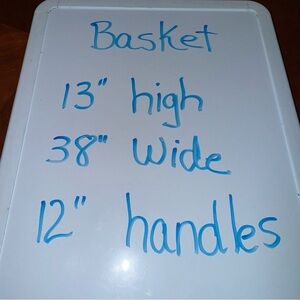 Basket
13" high
38" wide
12" handles